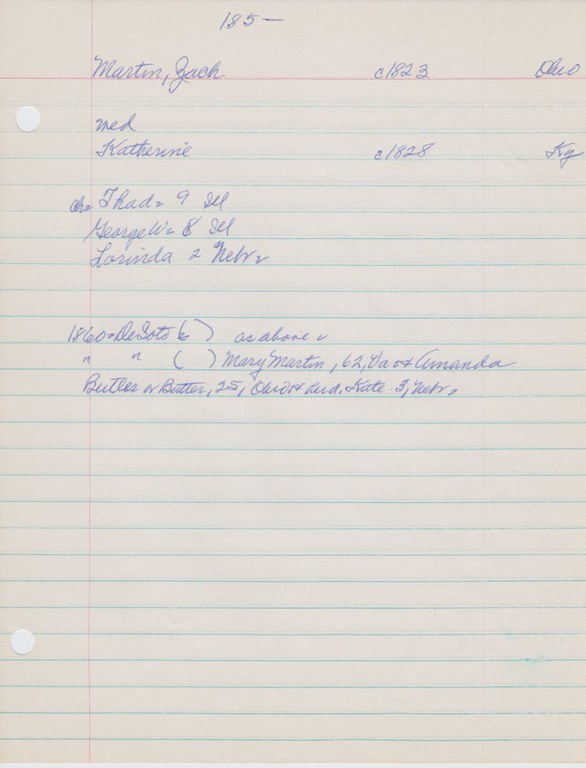 185—
Martin, Zach c1823 Ohio
med
Katherine c1828 Ky
ch= Thad= 9 Ill
George W= 8 Ill
Lorinda 2 Nebr
1860 DeSoto ( ) as above
" " ( ) Mary Martin, 62, Va & Amanda
Butler or Batter, 25, Ohio & Kate 3, Nebr.